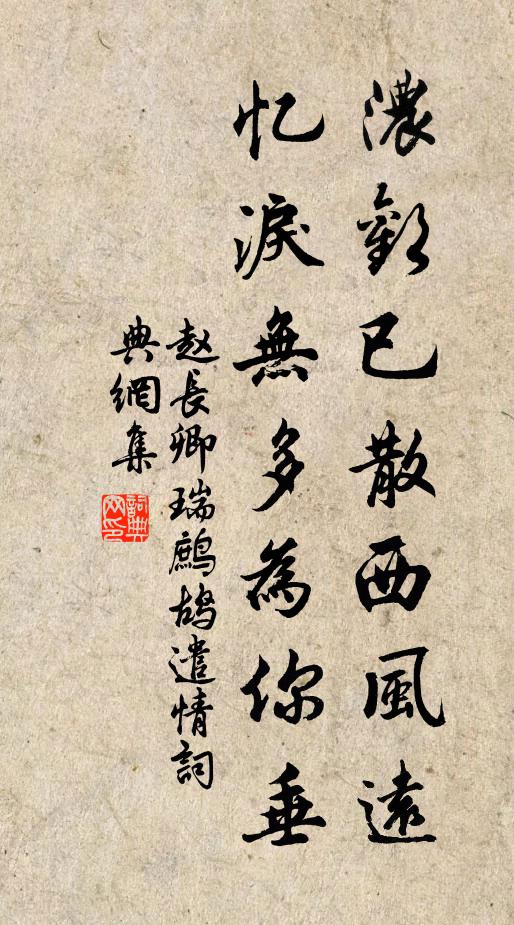 濃歡已散西風遠
忆淚無多為你垂
赵長卿瑞鷓鴣遣情詞
典網集
詞典网印